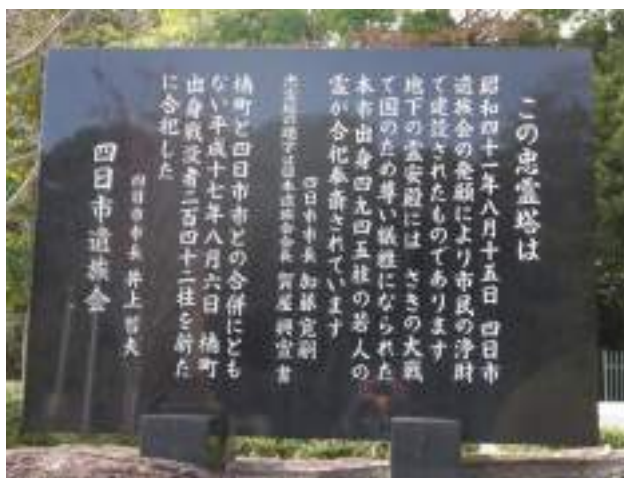 この忠霊塔は
昭和四十一年八月十五日 四日市
遺族会の発願により市民の浄財
で建設されたものであります
地下の霊安殿には さきの大戦
て国のため尊い犠牲になられた
本市出身四九四五柱の若人の
霊が合祀奉斎されています
四日市市長 加藤寛嗣
忠霊塔の題字は日本遺族会会長 賀屋興宣 書
楠町と四日市市との合併にとも
ない平成十七年八月六日 楠町
出身戦没者二百四十二柱を新た
に合祀した
四日市市長 井上哲夫
四日市遺族会